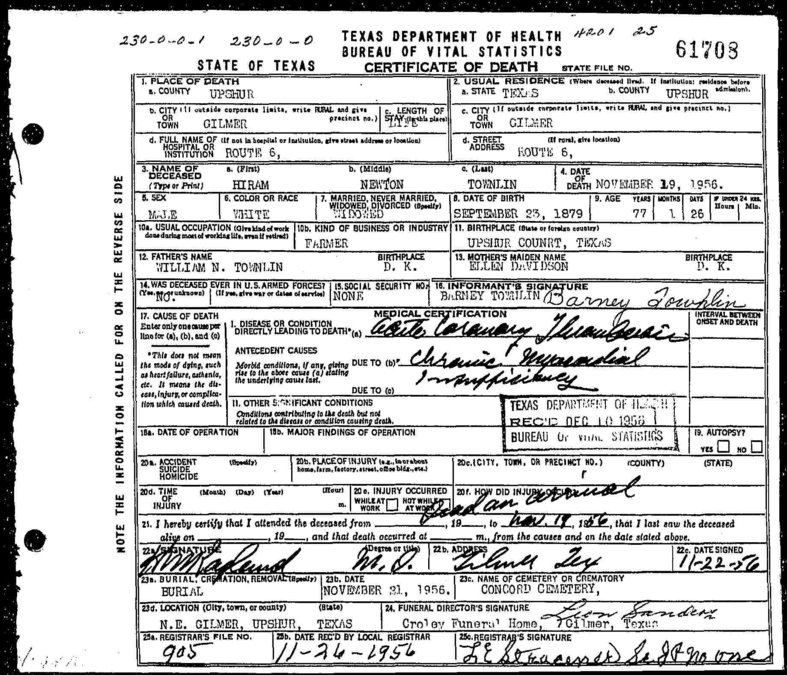 230-0-0-1 230-0-0 TEXAS DEPARTMENT OF HEALTH 4201 25
BUREAU OF VITAL STATISTICS 61708
STATE OF TEXAS CERTIFICATE OF DEATH STATE FILE NO.
1. PLACE OF DEATH 2. USUAL RESIDENCE (Where deceased lived. If institution: residence before admission).
a. COUNTY UPSHUR a. STATE TEXAS b. COUNTY UPSHUR
b. CITY (If outside corporate limits, write RURAL and give precinct no.) OR TOWN GILMER c. LENGTH OF STAY (in this place) LIFE c. CITY (If outside corporate limits, write RURAL and give precinct no.) OR TOWN GILMER
d. FULL NAME OF (If not in hospital or institution, give street address or location) HOSPITAL OR INSTITUTION ROUTE 6, d. STREET ADDRESS (If rural, give location) ROUTE 6,
3. NAME OF DECEASED (Type or Print) a. (First) HIRAM b. (Middle) NEWTON c. (Last) TOWNLIN 4. DATE OF DEATH NOVEMBER 19, 1956.
5. SEX MALE 6. COLOR OR RACE WHITE 7. MARRIED, NEVER MARRIED, WIDOWED, DIVORCED (Specify) WIDOWED 8. DATE OF BIRTH SEPTEMBER 23, 1879 9. AGE YEARS 77 MONTHS 1 DAYS 26 IF UNDER 24 HRS. Hours Min.
10a. USUAL OCCUPATION (Give kind of work done during most of working life, even if retired) 10b. KIND OF BUSINESS OR INDUSTRY FARMER 11. BIRTHPLACE (State or foreign country) UPSHUR COUNRT, TEXAS
12. FATHER'S NAME WILLIAM N. TOWNLIN BIRTHPLACE D. K. 13. MOTHER'S MAIDEN NAME ELLEN DAVIDSON BIRTHPLACE D. K.
14. WAS DECEASED EVER IN U.S. ARMED FORCES? (Yes, no, or unknown) NO. (If yes, give war or dates of service) 15. SOCIAL SECURITY NO. NONE 16. INFORMANT'S SIGNATURE BARNEY TOWNLIN Barney
17. CAUSE OF DEATH MEDICAL CERTIFICATION INTERVAL BETWEEN ONSET AND DEATH
Enter only one cause per line for (a), (b), and (c)
I. DISEASE OR CONDITION DIRECTLY LEADING TO DEATH* (a) Acute Coronary Thrombosis
*This does not mean the mode of dying, such as heart failure, asthenia, etc. It means the disease, injury, or complication which caused death.
ANTECEDENT CAUSES
Morbid conditions, if any, giving rise to the above cause (a) stating the underlying cause last.
DUE TO (b) Chronic Myocardial Insufficiency
DUE TO (c)
II. OTHER SIGNIFICANT CONDITIONS
Conditions contributing to the death but not related to the disease or condition causing death.
TEXAS DEPARTMENT OF HEALTH
REC'D DEC 10 1956
BUREAU OF VITAL STATISTICS
18a. DATE OF OPERATION 18b. MAJOR FINDINGS OF OPERATION 19. AUTOPSY? YES NO
20a. ACCIDENT SUICIDE HOMICIDE (Specify) 20b. PLACE OF INJURY (e.g., in or about home, farm, factory, street, office bldg., etc.) 20c. (CITY, TOWN, OR PRECINCT NO.) (COUNTY) (STATE)
20d. TIME OF INJURY (Month) (Day) (Year) (Hour) m. 20e. INJURY OCCURRED WHILE AT WORK NOT WHILE AT WORK 20f. HOW DID INJURY OCCUR?
Dead on arrival
21. I hereby certify that I attended the deceased from , 19 , to Nov. 19 1956, that I last saw the deceased
alive on , 19 , and that death occurred at m., from the causes and on the date stated above.
22a. SIGNATURE (Degree or title) M.D. 22b. ADDRESS Gilmer Tex 22c. DATE SIGNED 11-22-56
23a. BURIAL, CREMATION, REMOVAL (Specify) BURIAL 23b. DATE NOVEMBER 21, 1956. 23c. NAME OF CEMETERY OR CREMATORY CONCORD CEMETERY,
23d. LOCATION (City, town, or county) (State) N.E. GILMER, UPSHUR, TEXAS 24. FUNERAL DIRECTOR'S SIGNATURE Leon Sanders Croley Funeral Home, Gilmer, Texas
25a. REGISTRAR'S FILE NO. 905 25b. DATE REC'D BY LOCAL REGISTRAR 11-26-1956 25c. REGISTRAR'S SIGNATURE
NOTE THE INFORMATION CALLED FOR ON THE REVERSE SIDE